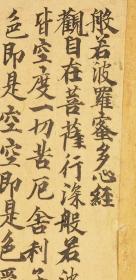 般若波羅蜜多心經
觀自在菩薩行深般若波
皆空度一切苦厄舍利子
色即是空空即是色受